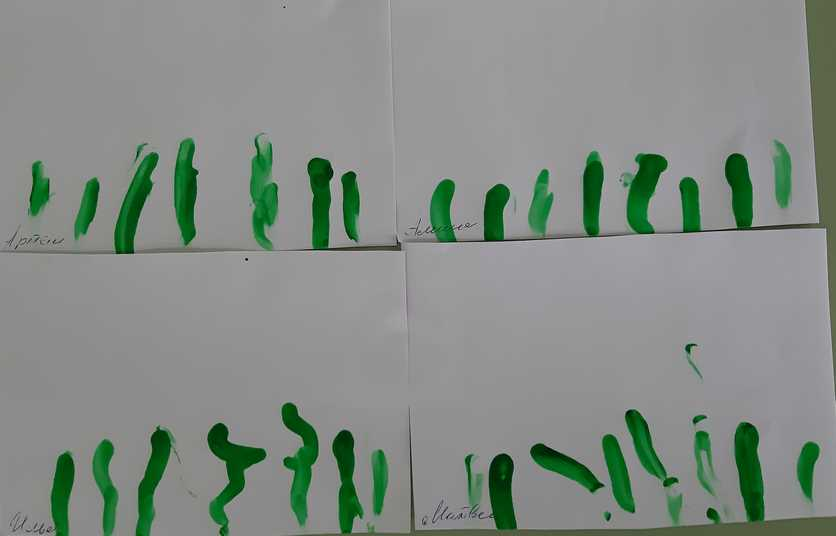 Артём
Алина
Илья
Матвей